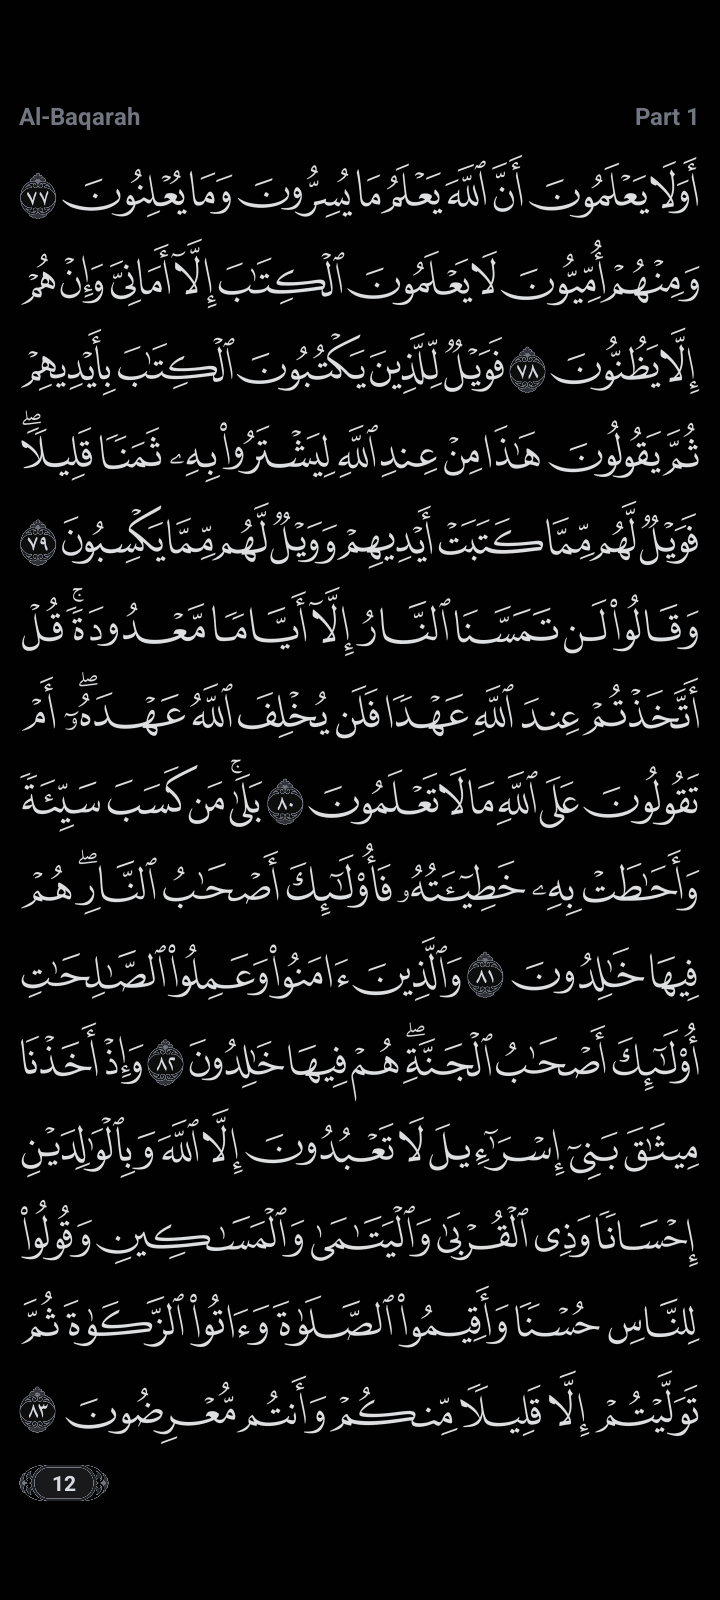 Al-Baqarah Part 1
أَوَلَا يَعۡلَمُونَ أَنَّ ٱللَّهَ يَعۡلَمُ مَا يُسِرُّونَ وَمَا يُعۡلِنُونَ ٧٧
وَمِنۡهُمۡ أُمِّيُّونَ لَا يَعۡلَمُونَ ٱلۡكِتَٰبَ إِلَّآ أَمَانِيَّ وَإِنۡ هُمۡ
إِلَّا يَظُنُّونَ ٧٨ فَوَيۡلٞ لِّلَّذِينَ يَكۡتُبُونَ ٱلۡكِتَٰبَ بِأَيۡدِيهِمۡ
ثُمَّ يَقُولُونَ هَٰذَا مِنۡ عِندِ ٱللَّهِ لِيَشۡتَرُواْ بِهِۦ ثَمَنٗا قَلِيلٗاۖ
فَوَيۡلٞ لَّهُم مِّمَّا كَتَبَتۡ أَيۡدِيهِمۡ وَوَيۡلٞ لَّهُم مِّمَّا يَكۡسِبُونَ ٧٩
وَقَالُواْ لَن تَمَسَّنَا ٱلنَّارُ إِلَّآ أَيَّامٗا مَّعۡدُودَةٗۚ قُلۡ
أَتَّخَذۡتُمۡ عِندَ ٱللَّهِ عَهۡدٗا فَلَن يُخۡلِفَ ٱللَّهُ عَهۡدَهُۥٓۖ أَمۡ
تَقُولُونَ عَلَى ٱللَّهِ مَا لَا تَعۡلَمُونَ ٨٠ بَلَىٰۚ مَن كَسَبَ سَيِّئَةٗ
وَأَحَٰطَتۡ بِهِۦ خَطِيٓـَٔتُهُۥ فَأُوْلَٰٓئِكَ أَصۡحَٰبُ ٱلنَّارِۖ هُمۡ
فِيهَا خَٰلِدُونَ ٨١ وَٱلَّذِينَ ءَامَنُواْ وَعَمِلُواْ ٱلصَّٰلِحَٰتِ
أُوْلَٰٓئِكَ أَصۡحَٰبُ ٱلۡجَنَّةِۖ هُمۡ فِيهَا خَٰلِدُونَ ٨٢ وَإِذۡ أَخَذۡنَا
مِيثَٰقَ بَنِيٓ إِسۡرَٰٓءِيلَ لَا تَعۡبُدُونَ إِلَّا ٱللَّهَ وَبِٱلۡوَٰلِدَيۡنِ
إِحۡسَانٗا وَذِي ٱلۡقُرۡبَىٰ وَٱلۡيَتَٰمَىٰ وَٱلۡمَسَٰكِينِ وَقُولُواْ
لِلنَّاسِ حُسۡنٗا وَأَقِيمُواْ ٱلصَّلَوٰةَ وَءَاتُواْ ٱلزَّكَوٰةَ ثُمَّ
تَوَلَّيۡتُمۡ إِلَّا قَلِيلٗا مِّنكُمۡ وَأَنتُم مُّعۡرِضُونَ ٨٣
12